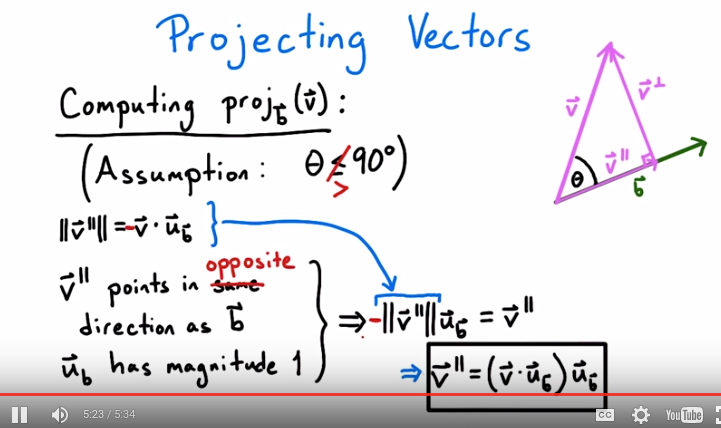 Projecting Vectors
Computing proj_b⃗(v⃗):
(Assumption: θ ≤ 90°)
>
‖v⃗"‖ = -v⃗ · u⃗_b⃗
opposite
v⃗" points in same
direction as b⃗
u⃗_b has magnitude 1
⇒ -‖v⃗"‖u⃗_b⃗ = v⃗"
⇒ v⃗" = (v⃗ · u⃗_b⃗) u⃗_b⃗
v⃗
v⃗⊥
v⃗"
θ
b⃗
5:23 / 5:34
CC
YouTube